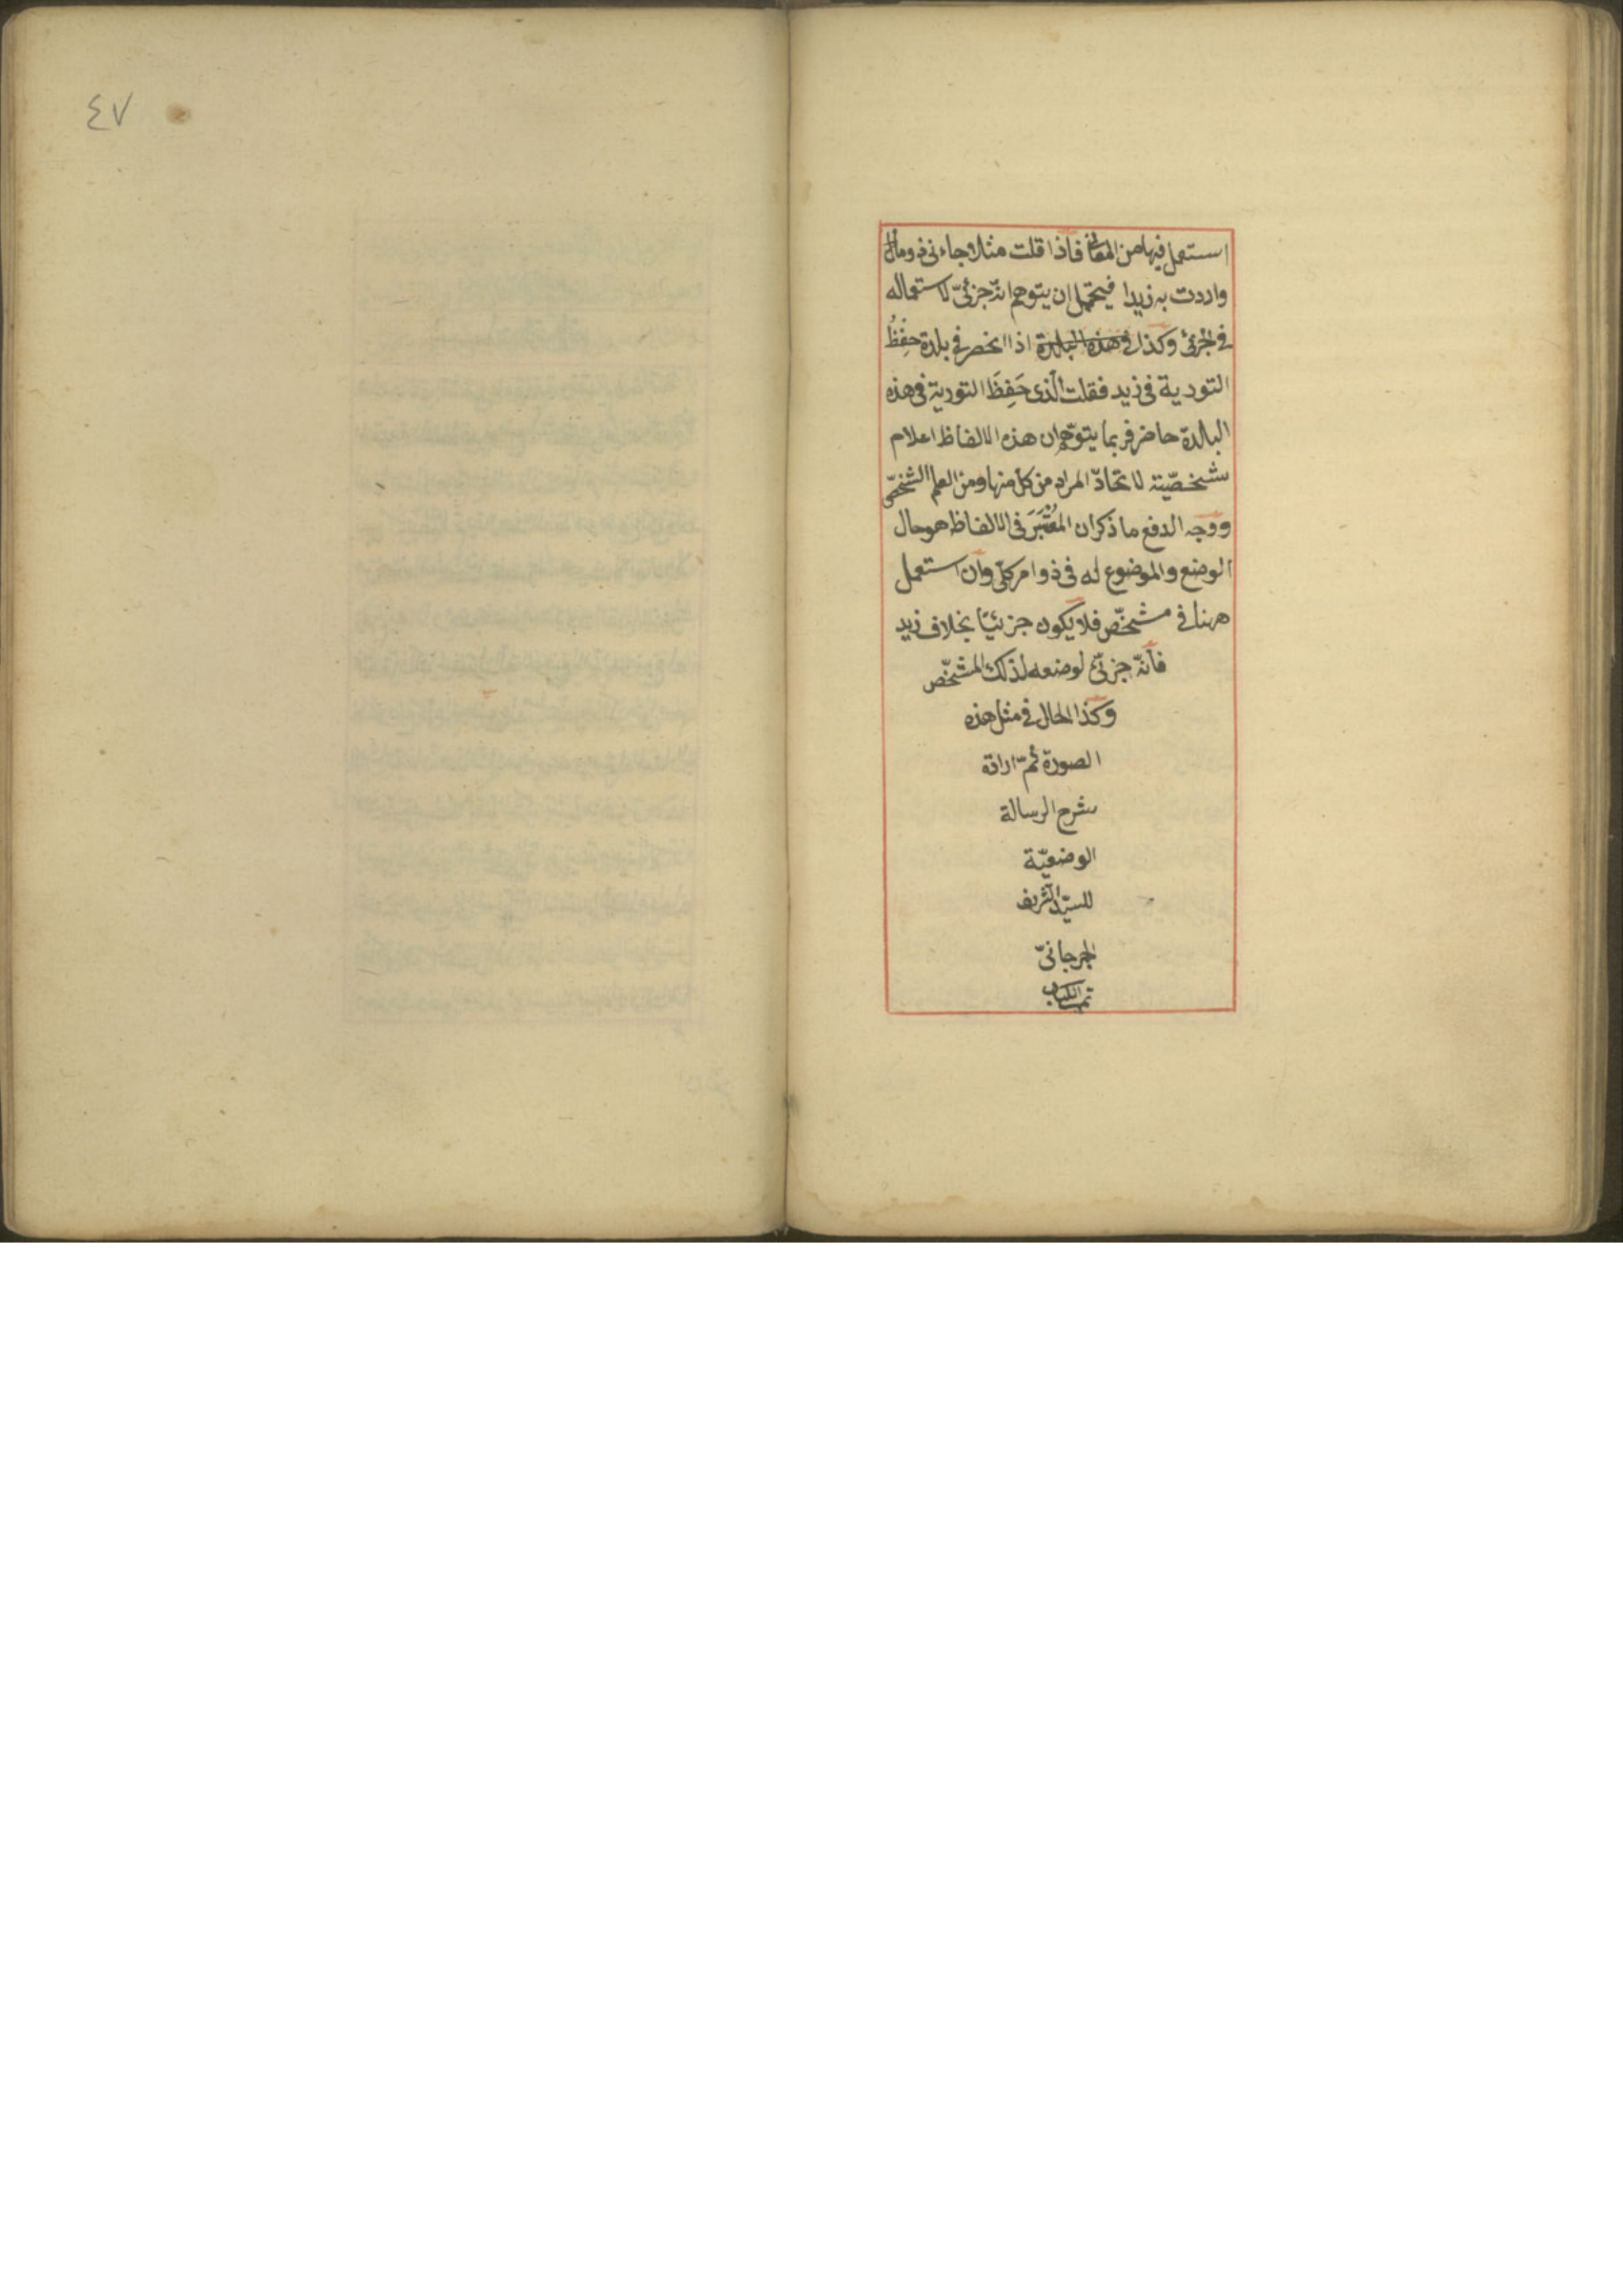 استعمل فيها من المعانى فاذا قلت مثلا جاءنى ذو مال
واردت به زيدا فيحتمل ان يتوهم انه جزئىّ لاستعماله
فى الجزئى وكذا فى هذه البلدة اذا انحصر فى بلدة حفِظُ
التورية فى زيد فقلت الّذى حَفِظَ التورية فى هذه
البلدة حاضر فربما يتوهّم ان هذه الالفاظ اعلام
شخصّية لاتحادّ المراد من كل منها ومن العلم الشخصّى
ووجه الدفع ما ذكر ان المُعْتَبَرَ فى الالفاظ هو حال
الوضع والموضوع له فى ذو امر كلّى وان استعمل
ههنا فى مشخّص فلا يكون جزئيّا بخلاف زيد
فانّه جزئىّ لوضعه لذلك المشخّص
وكذا الحال فى مثل هذه
الصورة تمّ
شرح الرسالة
الوضعيّة
للسيّد الشريف
الجرجانىّ
تم الكتاب
٤٧